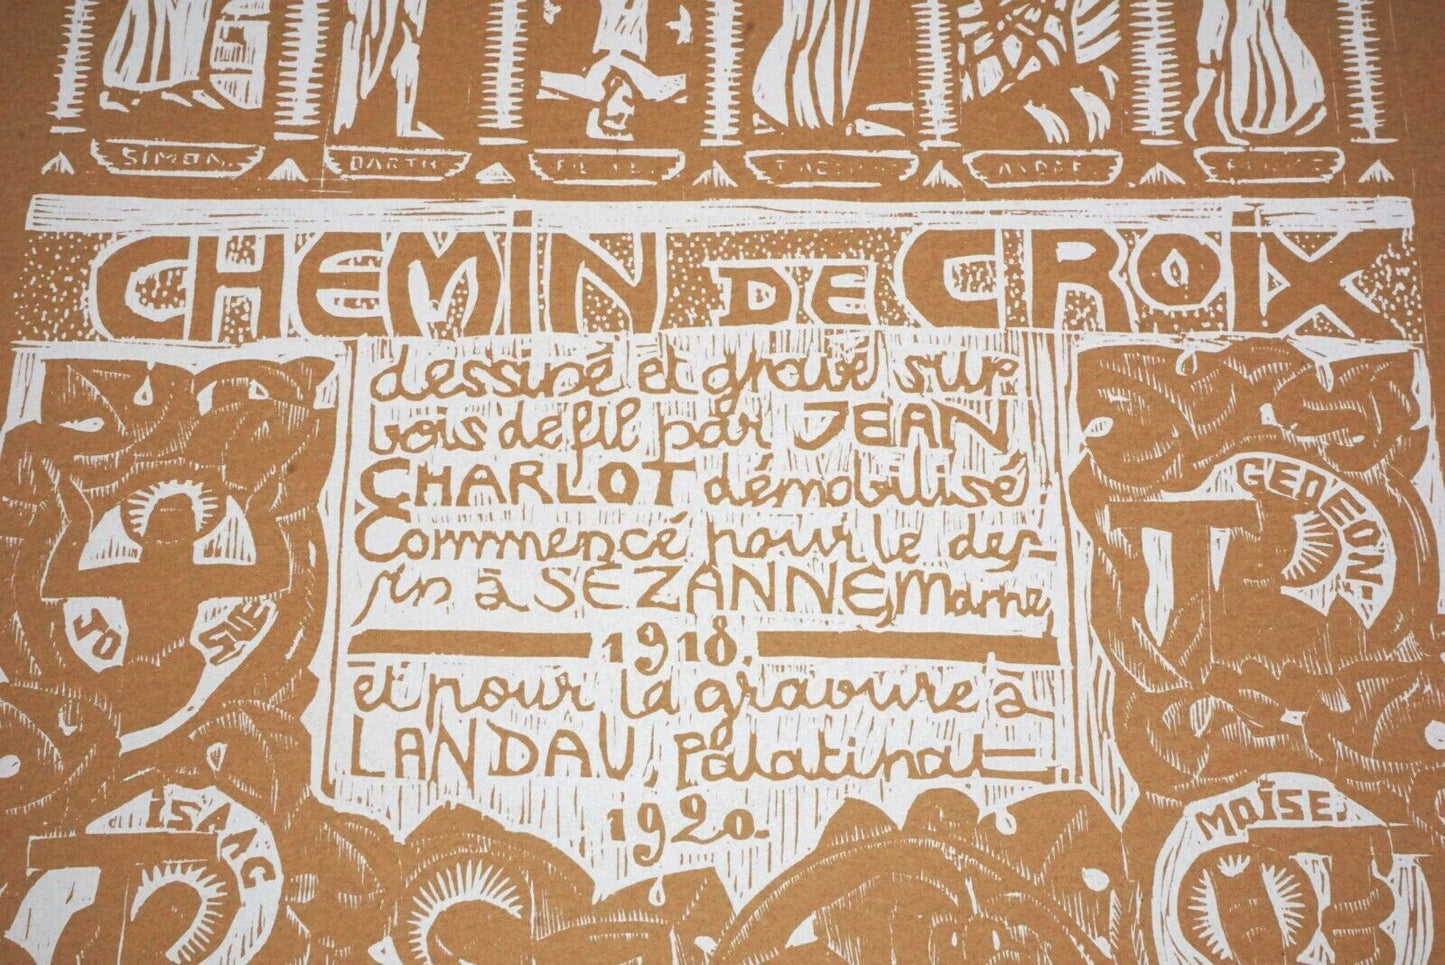 SIMON.
BARTH
ANDRE
CHEMIN DE CROIX
dessiné et gravé sur
bois de fil par JEAN
CHARLOT démobilisé.
Commencé pour le des-
sin à SÉZANNE, Marne
1918.
et pour la gravure à
LANDAU, Palatinat
1920.
GEDEON.
JO SUE
ISAAC
MOÏSE.